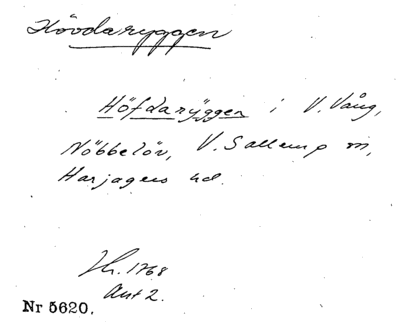 Hövdaryggen
Höfdarÿggen i V. Vång,
Nöbbelöv, V. Sallerup m,
Harjagers hd.
Jh. 1768
Ant 2.
Nr 5620.